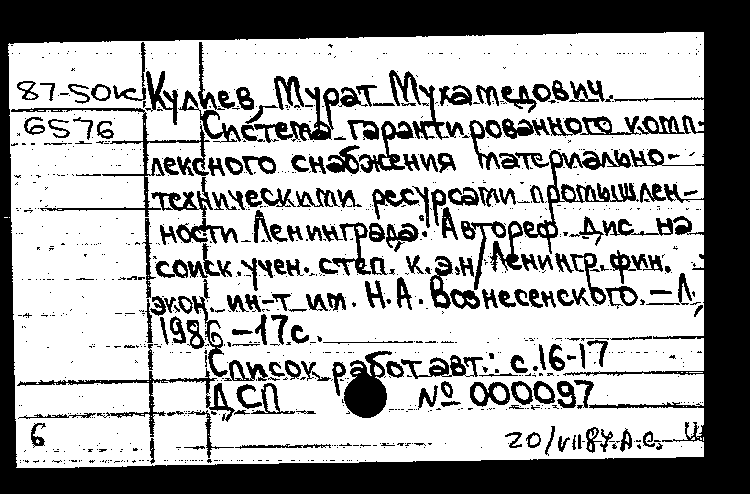 87-50к Кулиев, Мурат Мухамедович.
6576 Система гарантированного комп-
лексного снабжения материально-
техническими ресурсами промышлен-
ности Ленинграда: Автореф. дис. на
соиск. учен. степ. к.э.н/Ленингр. фин.
экон. ин-т им. Н.А. Вознесенского. – Л.,
1986. – 17с.
Список работ авт.: с.16-17
ДСП № 000097
6 20/VII87. А.С.